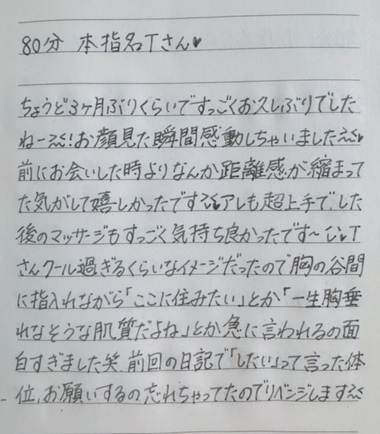 80分 本指名Tさん♥
ちょうど3ヶ月ぶりくらいですっごくお久しぶりでした
ねー!お顔見た瞬間感動しちゃいました
前にお会いした時よりなんか距離感が縮まって
た気がして嬉しかったです♥アレも超上手でした
後のマッサージもすっごく気持ち良かったです〜♥T
さんクール過ぎるくらいなイメージだったので胸の谷間
に指入れながら「ここに住みたい」とか「一生胸垂
れなそうな肌質だよね」とか急に言われるの面
白すぎました笑 前回の日記で「したい」って言った体
位、お願いするの忘れちゃってたのでリベンジします